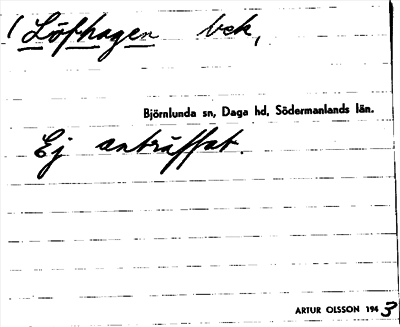 ( Löfhagen bck,
Björnlunda sn, Daga hd, Södermanlands län.
Ej anträffat.
ARTUR OLSSON 1943